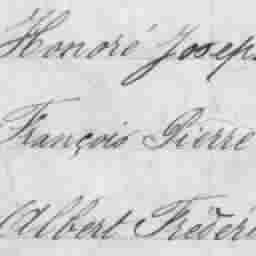 Honoré Joseph
François Pierre
Albert Fréderi